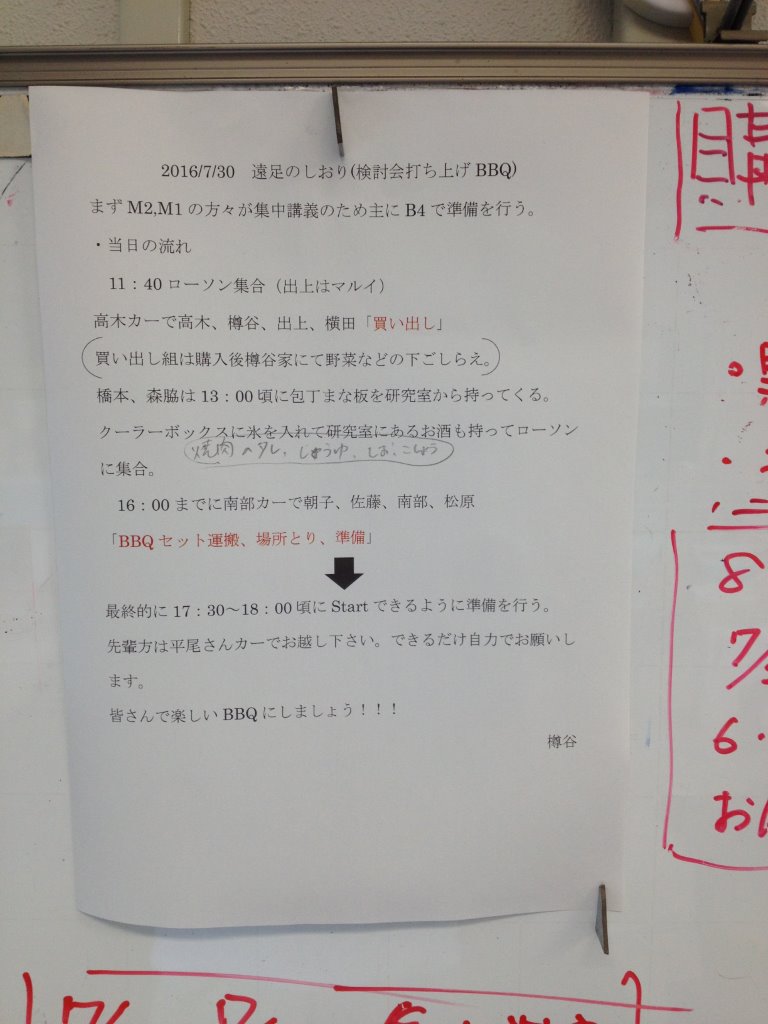 2016/7/30　遠足のしおり(検討会打ち上げ BBQ)
まず M2,M1 の方々が集中講義のため主に B4 で準備を行う。
・当日の流れ
11：40 ローソン集合（出上はマルイ）
高木カーで高木、樽谷、出上、横田「買い出し」
買い出し組は購入後樽谷家にて野菜などの下ごしらえ。
橋本、森脇は 13：00 頃に包丁まな板を研究室から持ってくる。
クーラーボックスに氷を入れて研究室にあるお酒も持ってローソン
焼肉のタレ、しょうゆ、しお、こしょう
に集合。
16：00 までに南部カーで朝子、佐藤、南部、松原
「BBQ セット運搬、場所とり、準備」
最終的に 17：30～18：00 頃に Start できるように準備を行う。
先輩方は平尾さんカーでお越し下さい。できるだけ自力でお願いし
ます。
皆さんで楽しい BBQ にしましょう！！！
樽谷
購
8
7/
6・